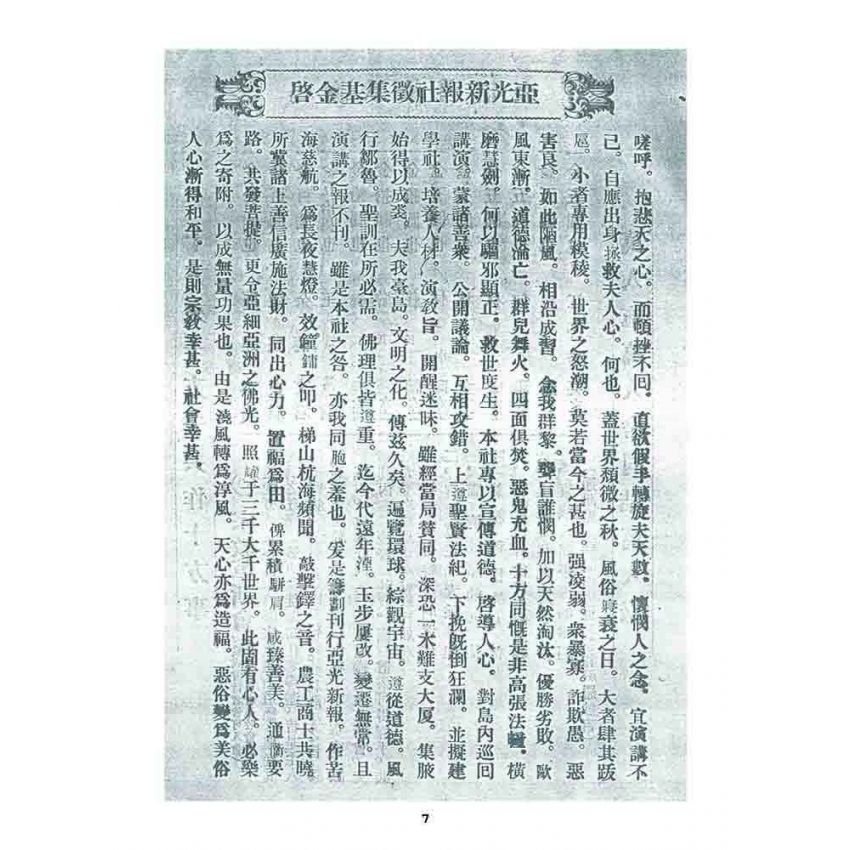 亞光新報社徵集基金啓
嗟呼。抱悲天之心。而頓挫不回。直欲假手轉旋夫天數。懷憫人之念。宜演講不
已。自應出身拯救夫人心。何也。蓋世界頹微之秋。風俗寖衰之日。大者肆其跋
扈。小者專用模稜。世界之怒潮。莫若當今之甚也。强凌弱。衆暴寡。詐欺愚。惡
害良。如此陋風。相沿成習。念我群黎。聾盲誰憫。加以天然淘汰。優勝劣敗。歐
風東漸。道德淪亡。群兒舞火。四面俱焚。惡鬼充血。十方同慨是非高張法幢。橫
磨慧劍。何以驅邪顯正。救世度生。本社專以宣傳道德。啓導人心。對島內巡回
講演。蒙諸善衆。公開議論。互相攻錯。上遵聖賢法紀。下挽旣倒狂瀾。並擬建
學社。培養人材。演敎旨。開醒迷昧。雖經當局賛同。深恐一木難支大厦。集腋
始得以成裘。夫我臺島。文明之化。傳兹久矣。遍覽環球。綜觀宇宙。遵從道德。風
行鄒魯。聖訓在所必需。佛理俱皆遵重。迄今代遠年湮。玉步屢改。變遷無常。且
演講之報不刊。雖是本社之咎。亦我同胞之羞也。爰是籌劃刊行亞光新報。作苦
海慈航。爲長夜慧燈。效鐘鏞之叩。梯山杭海頻聞。敲擊鐸之音。農工商士共曉
所冀諸上善信廣施法財。同出心力。置福爲田。俾累積駢肩。咸臻善美。通衢要
路。共發菩提。更令亞細亞洲之佛光。照燿于三千大千世界。此固有心人。必樂
爲之寄附。以成無量功果也。由是澆風轉爲淳風。天心亦爲造福。惡俗變爲美俗
人心漸得和平。是則宗敎幸甚。社會幸甚。
7